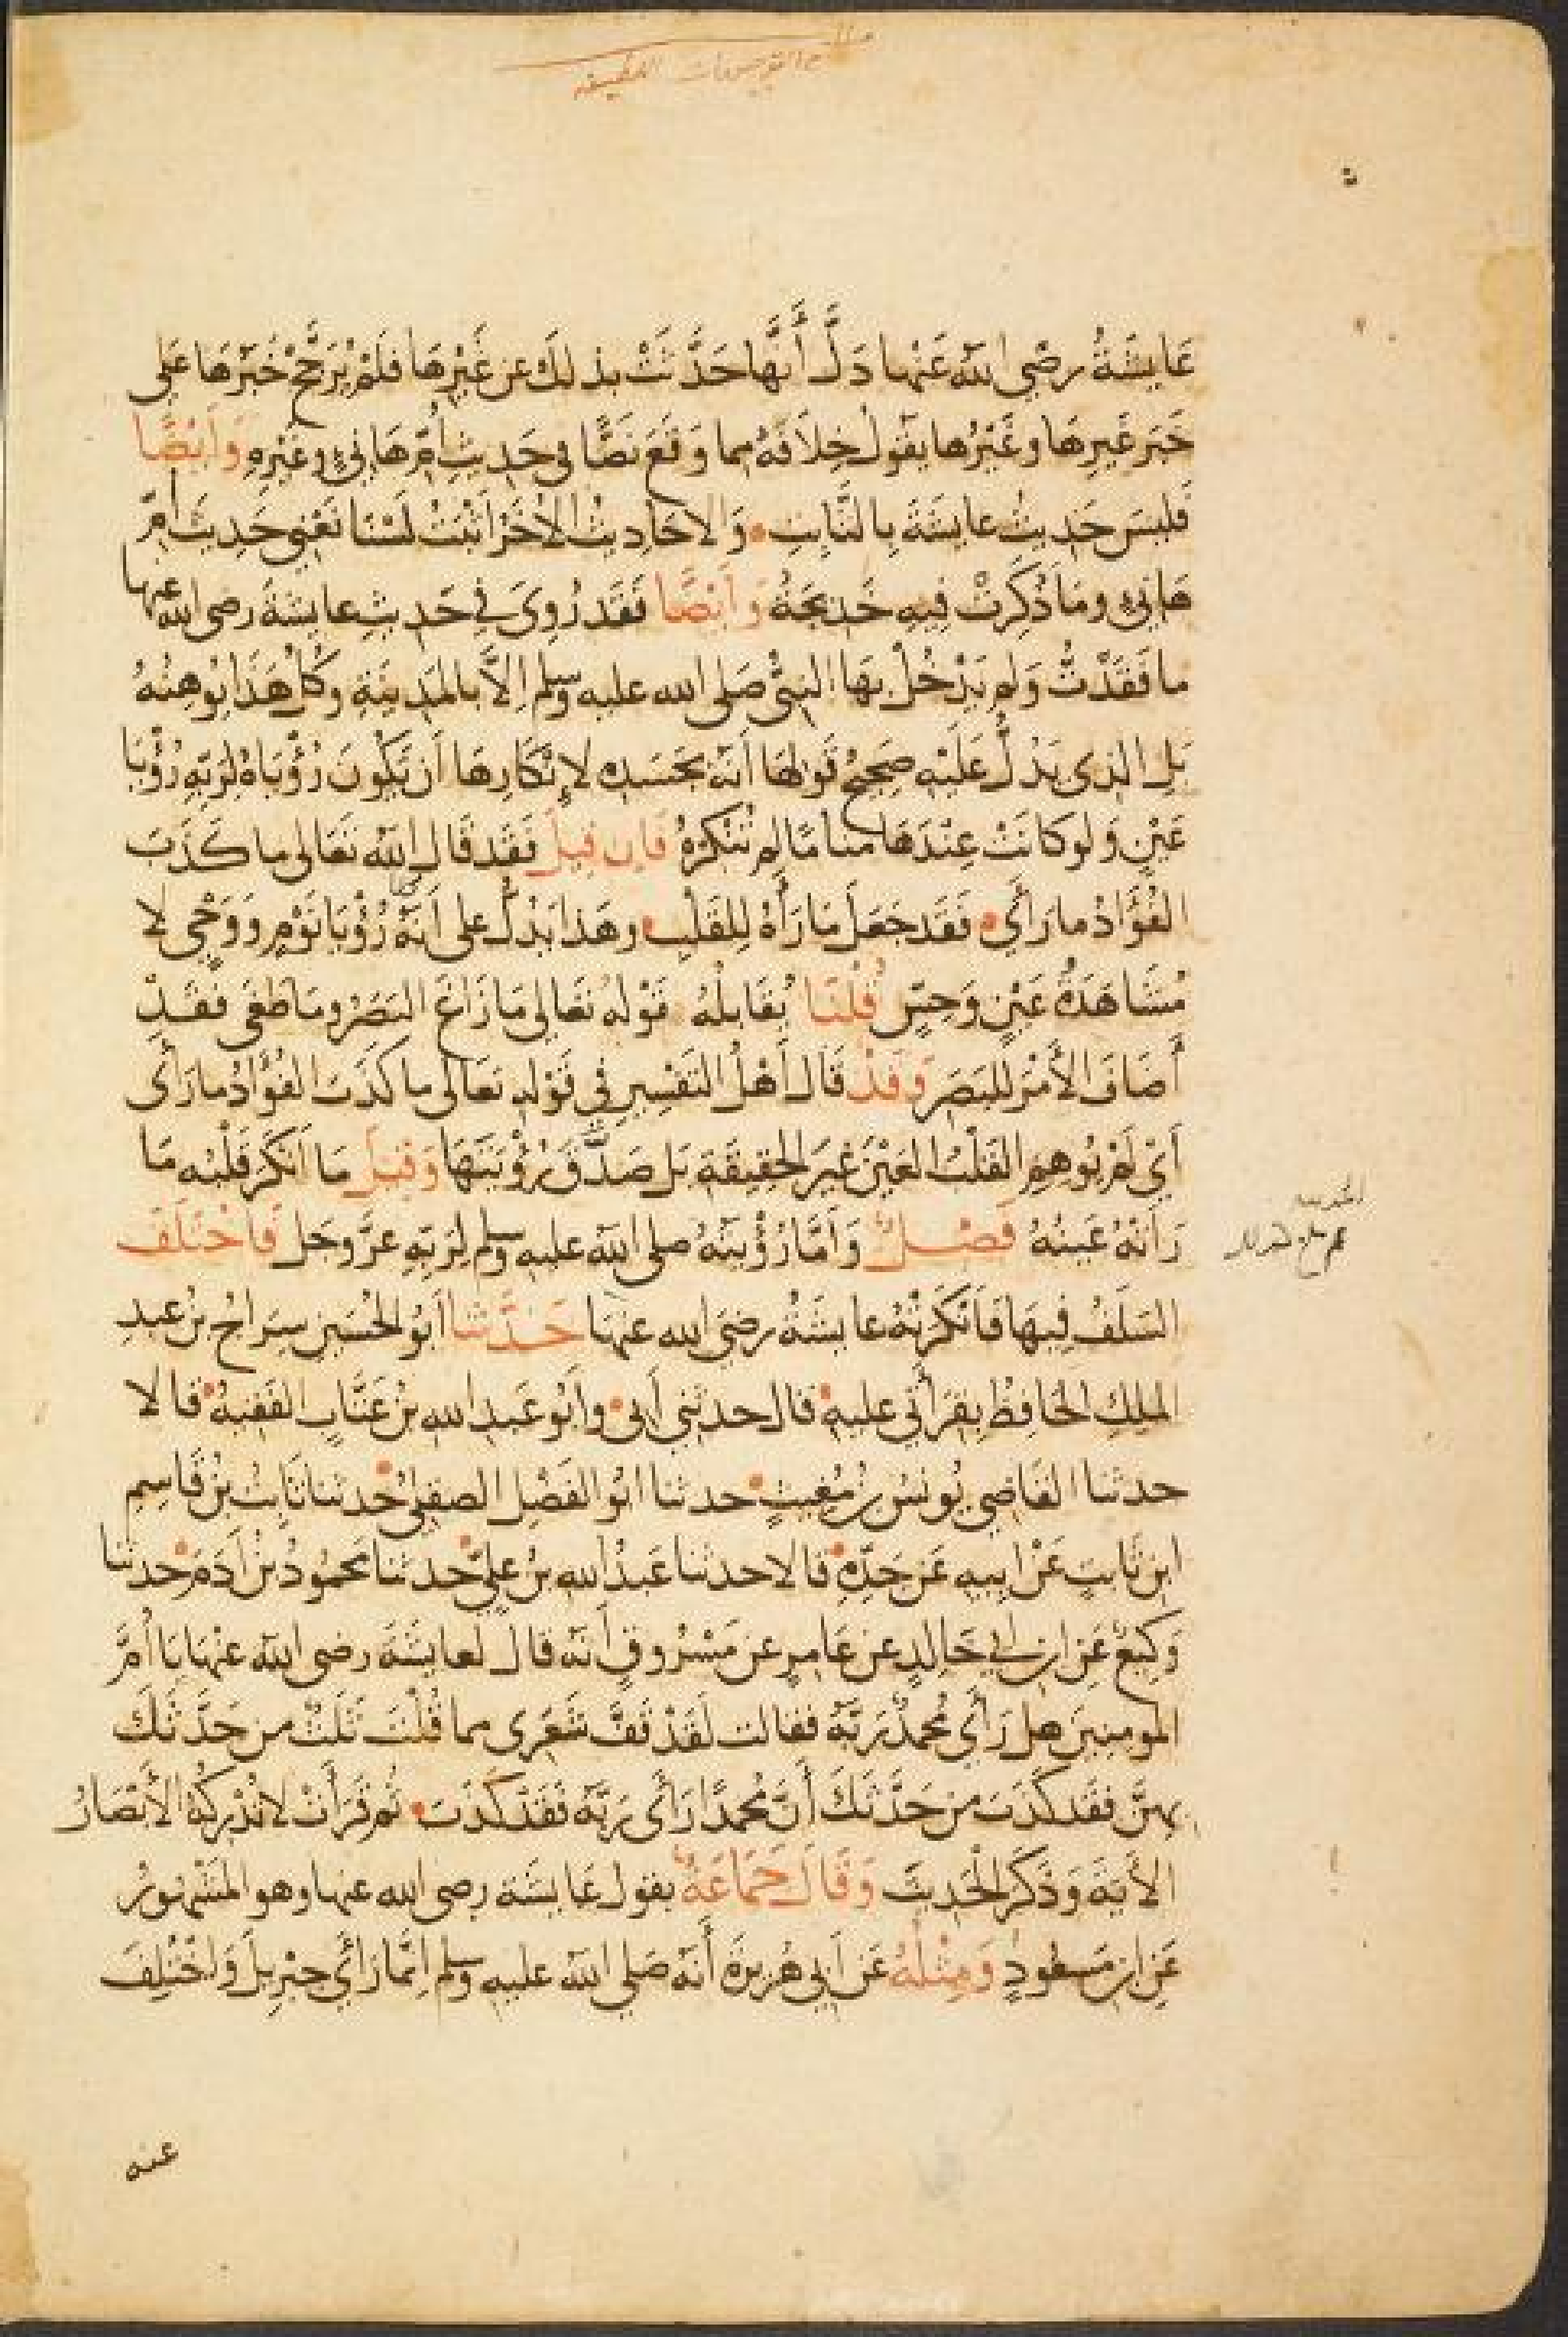 عَايِشَةُ رضي الله عَنْها دَلَّ أَنَّها حَدَّثَتْ بذلكَ عن غَيْرِهَا فَلَمْ يُرَجَّحْ خَبَرُهَا عَلى
خَبَرِ غَيرِهَا وغَيْرُها يَقولُ خِلَافَهُ مما وَقَعَ نَصًّا في حَدِيثِ أُمِّ هَانِئٍ وغَيْرِهِ وَأَيْضًا
فَليسَ حَدِيثُ عايشَةَ بِالثَّابتِ وَالاحَادِيثُ الأُخَرُ أَثْبَتُ لَسْنَا نَعْنِي حَدِيثَ أُمِّ
هَانِئٍ ومَا ذُكِرَتْ فِيهِ خَدِيجَةُ وَأَيْضًا فَقَد رُوِيَ في حَدِيثِ عايشَةَ رضي الله عنها
ما فَقَدْتُ وَلم يَدْخُلْ بهَا النبيُّ صَلى الله عليه وسلم إلَّا بالمَدِينَةِ وكُلُّ هَذَا يُوهِنُهُ
بَلِ الذِي يَدُلُّ عَلَيْهِ صَحِيحُ قَولِهَا أنَّهُ بجَسَدِهِ لإنْكَارِهَا أن تَكُونَ رُؤْيَاهُ لِرَبِّهِ رُؤْيَا
عَيْنٍ وَلو كَانَتْ عِنْدَهَا منامًا لم تُنْكِرْهُ فَإن قِيلَ فَقَد قَالَ اللهُ تَعَالى ما كَذَبَ
الفُؤَادُ ما رَأَي فَقَد جَعَلَ مَا رَآهُ لِلقَلْبِ وهَذا يَدُلُّ على أنَّهُ رُؤْيَا نَوْمٍ وَوَحْي لا
مُشَاهَدَةُ عَيْنٍ وَحِسٍّ قُلْنَا يُقَابلُهُ قَوْلهُ تَعَالى مَا زَاغَ البَصَرُ ومَا طَغَى فَقَدْ
أَضَافَ الأَمْرَ للبَصَرِ وَقَدْ قَالَ أَهْلُ التَفْسِيرِ في قَوْلِهِ تعَالى ما كَذَبَ الفُؤَادُ ما رَأَى
أيْ لَمْ يُوهِمِ القَلْبُ العَيْنَ غَيرَ الحَقِيقَةِ بَل صَدَّقَ رُؤْيَتَهَا وَقِيلَ مَا أنكَرَ قَلْبُه مَا
رَأَتْهُ عَينُهُ فَصْــلٌ وَأمَّا رُؤْيَتُهُ صلى الله عليه وسلم لِرَبِّهِ عزَّ وجَل فَاخْتَلَفَ
السَلَفُ فِيهَا فَأنْكَرَتْهُ عَايشَةُ رضي الله عنها حَدَّثَنَا أبُو الحُسَينِ سِرَاجُ بنُ عبدِ
الملِكِ الحَافِظُ بِقرَأَتي عليهِ قال حدثني أَبي وأَبُو عَبدِ الله بنُ عَتَّابٍ الفَقِيهُ قالا
حدثنا القَاضي يُونسُ بنُ مُغيثٍ حدثنا أبُو الفَضْلِ الصقِليُّ حدثنا ثَابتُ بنُ قَاسِمِ
ابنِ ثَابتٍ عَنْ أبِيهِ عَن جَدِّهِ قالا حدثنا عَبدُ الله بنُ عليٍّ حدثنا محمُودُ بنُ آدَمَ حدثنا
وَكِيعٌ عَنِ ابنِ أبي خَالِدٍ عن عَامِرٍ عن مَسْرُوقٍ أَنهُ قال لعايشَةَ رضي الله عنها يَا أُمَّ
المومِنِينَ هل رَأَى مُحمدٌ رَبَّهُ فقالت لَقَدْ قَفَّ شَعَرِي مما قُلْتَ ثَلَثٌ من حَدَّثَكَ
بهِنَّ فقَد كَذَبَ من حَدَّثَكَ أنَّ مُحمدًا رَأَى رَبَّهُ فَقَدْ كَذَبَ ثم قَرَأَتْ لا تُدْرِكُهُ الأَبْصَارُ
الآيَةَ وَذَكَرَ الحَدِيثَ وَقَالَ جَمَاعَةٌ بقولِ عَايشَة رضي الله عنها وهو المَشْهُورُ
عَنِ ابنِ مَسعُودٍ وَمِثْلُهُ عَن أبي هُرَيرَةَ أَنهُ صَلى الله عليه وسلم إنَّمَا رَأَي جبْرِيلَ وَاخْتُلِفَ
عنه